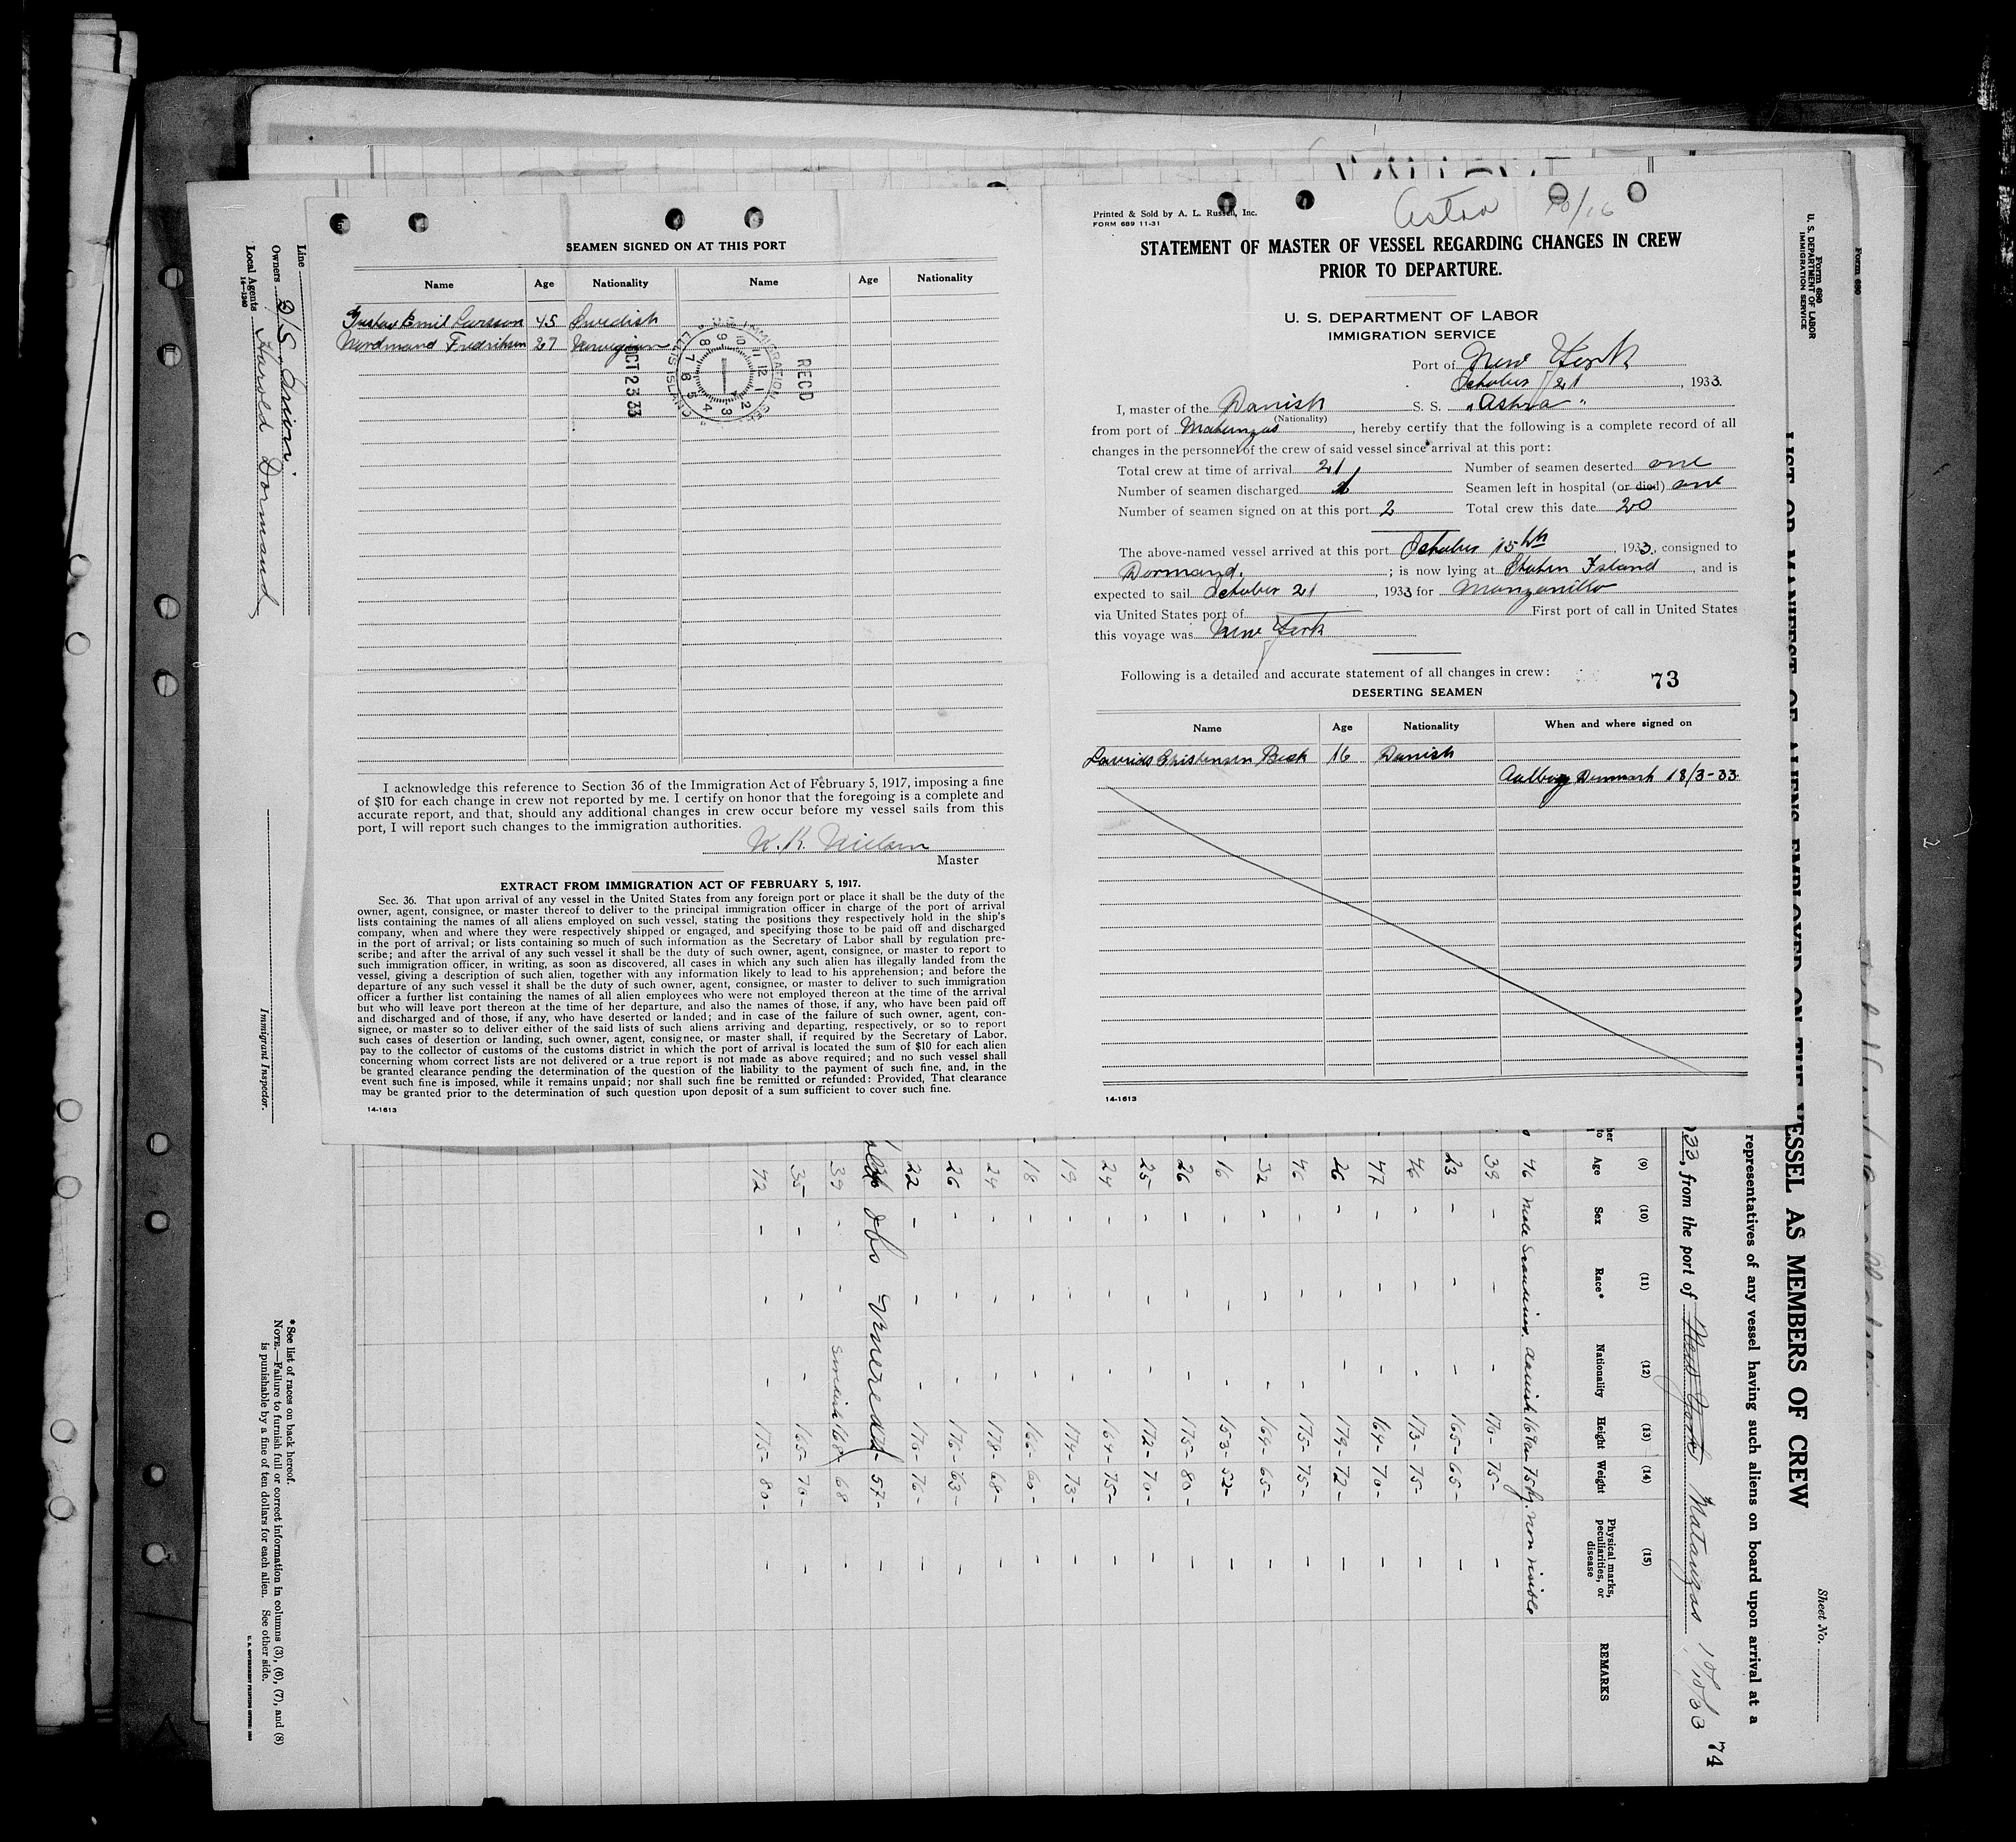 SEAMEN SIGNED ON AT THIS PORT
Name Age Nationality Name Age Nationality
Gustav Emil Larsson 45 Swedish
Nordmand Fredriksen 27 Norwegian
REC'D
OCT 23 33
ELLIS ISLAND
I acknowledge this reference to Section 36 of the Immigration Act of February 5, 1917, imposing a fine
of $10 for each change in crew not reported by me. I certify on honor that the foregoing is a complete and
accurate report, and that, should any additional changes in crew occur before my vessel sails from this
port, I will report such changes to the immigration authorities.
K. Nielsen
Master
EXTRACT FROM IMMIGRATION ACT OF FEBRUARY 5, 1917.
Sec. 36. That upon arrival of any vessel in the United States from any foreign port or place it shall be the duty of the
owner, agent, consignee, or master thereof to deliver to the principal immigration officer in charge of the port of arrival
lists containing the names of all aliens employed on such vessel, stating the positions they respectively hold in the ship's
company, when and where they were respectively shipped or engaged, and specifying those to be paid off and discharged
in the port of arrival; or lists containing so much of such information as the Secretary of Labor shall by regulation pre-
scribe; and after the arrival of any such vessel it shall be the duty of such owner, agent, consignee, or master to report to
such immigration officer, in writing, as soon as discovered, all cases in which any such alien has illegally landed from the
vessel, giving a description of such alien, together with any information likely to lead to his apprehension; and before the
departure of any such vessel it shall be the duty of such owner, agent, consignee, or master to deliver to such immigration
officer a further list containing the names of all alien employees who were not employed thereon at the time of the arrival
but who will leave port thereon at the time of her departure, and also the names of those, if any, who have been paid off
and discharged and of those, if any, who have deserted or landed; and in case of the failure of such owner, agent, con-
signee, or master so to deliver either of the said lists of such aliens arriving and departing, respectively, or so to report
such cases of desertion or landing, such owner, agent, consignee, or master shall, if required by the Secretary of Labor,
pay to the collector of customs of the customs district in which the port of arrival is located the sum of $10 for each alien
concerning whom correct lists are not delivered or a true report is not made as above required; and no such vessel shall
be granted clearance pending the determination of the question of the liability to the payment of such fine, and, in the
event such fine is imposed, while it remains unpaid; nor shall such fine be remitted or refunded: Provided, That clearance
may be granted prior to the determination of such question upon deposit of a sum sufficient to cover such fine.
14-1613
Printed & Sold by A. L. Russell, Inc.
FORM 689 11-31
Astra 10/16
STATEMENT OF MASTER OF VESSEL REGARDING CHANGES IN CREW
PRIOR TO DEPARTURE.
U. S. DEPARTMENT OF LABOR
IMMIGRATION SERVICE
Port of New York
October 21, 1933.
I, master of the Danish S. S. "Astra"
(Nationality)
from port of Matanzas, hereby certify that the following is a complete record of all
changes in the personnel of the crew of said vessel since arrival at this port:
Total crew at time of arrival 21 Number of seamen deserted one
Number of seamen discharged 1 Seamen left in hospital (or died) one
Number of seamen signed on at this port 2 Total crew this date 20
The above-named vessel arrived at this port October 15th, 1933, consigned to
Dormand. ; is now lying at Staten Island, and is
expected to sail October 21, 1933 for Manzanillo
via United States port of First port of call in United States
this voyage was New York
Following is a detailed and accurate statement of all changes in crew:
73
DESERTING SEAMEN
Name Age Nationality When and where signed on
Laurids Christensen Beck 16 Danish
Aalborg Denmark 18/3-33
14-1613
Form 680
U. S. DEPARTMENT OF LABOR
IMMIGRATION SERVICE
Form 680
LIST OR MANIFEST OF ALIENS EMPLOYED ON THE VESSEL AS MEMBERS OF CREW
Sheet No.
representatives of any vessel having such aliens on board upon arrival at a
33, from the port of New York Matanzas 74
(9) (10) (11) (12) (13) (14) (15)
Age Sex Race* Nationality Height Weight Physical marks, peculiarities, or disease REMARKS
46 Male Scandinav. Danish 167cm 75kg. non visible
39 - - - 170- 75- -
23 - - - 165- 65- -
46 - - - 173- 75- -
47 - - - 164- 70- -
26 - - - 179- 72- -
46 - - - 175- 75- -
32 - - - 164- 65- -
16 - - - 153- 52- -
26 - - - 175- 80- -
25 - - - 172- 70- -
24 - - - 164- 75- -
19 - - - 174- 73- -
18 - - - 166- 60- -
24 - - - 178- 68- -
26 - - - 176- 63- -
22 - - - 170- 76- -
obs venereal 57- -
39 - - Swedish 168 68 -
35 - - - 165- 70- -
42 - - - 175- 80- -
Line
Owners D/S Orion
Local Agents Harold Dormand
14-1240
Immigrant Inspector.
*See list of races on back hereof.
NOTE.—Failure to furnish full or correct information in columns (3), (6), (7), and (8)
is punishable by a fine of ten dollars for each alien. See other side.